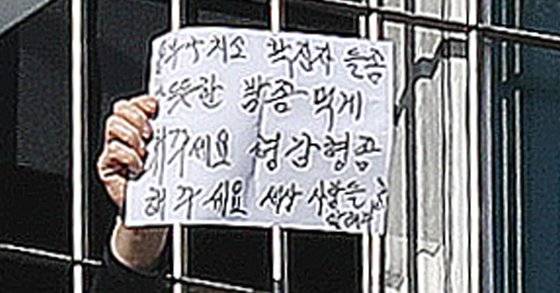 치소 확진자 들좀
따뜻한 빵좀 먹게
해주세요 형감형좀
해주세요 세상 사람들